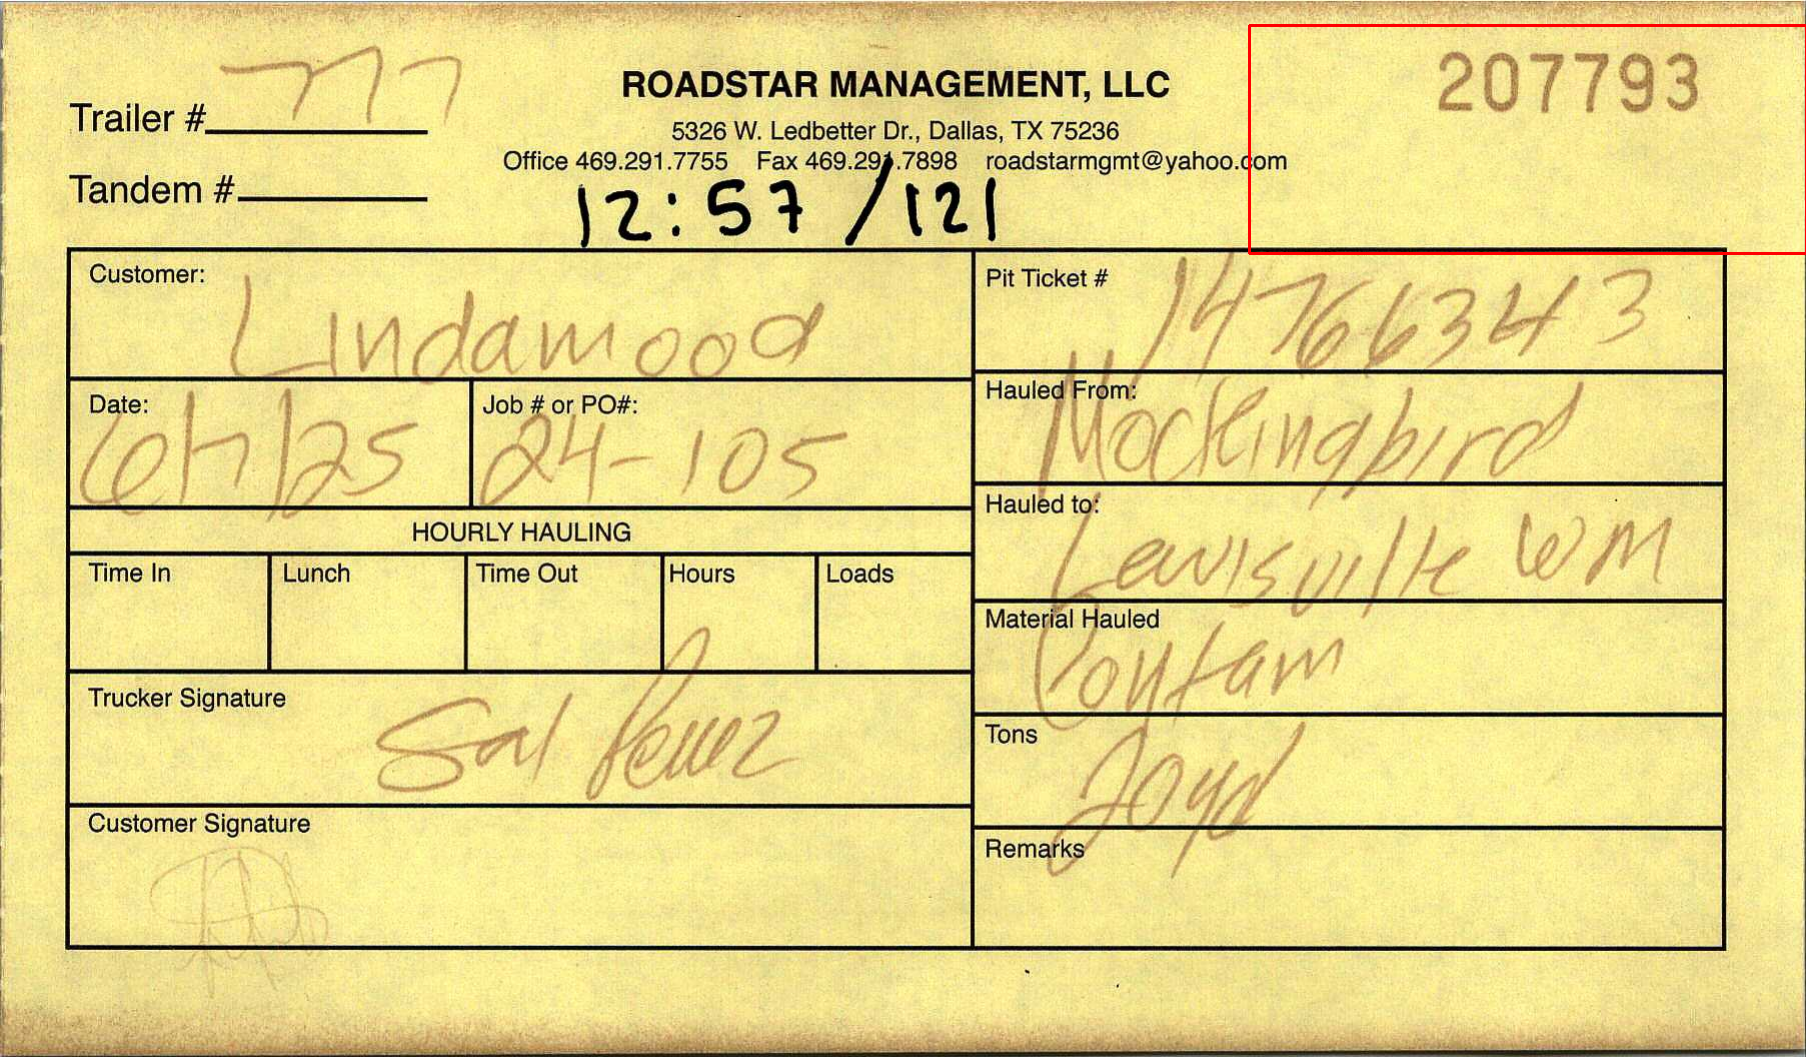 207793
Trailer # 777
ROADSTAR MANAGEMENT, LLC
5326 W. Ledbetter Dr., Dallas, TX 75236
Office 469.291.7755 Fax 469.291.7898 roadstarmgmt@yahoo.com
Tandem #
12:57 /121
Customer: Lindamood
Pit Ticket # 14766343
Date: 6/7/25
Job # or PO#: 24-105
Hauled From: Mockingbird
Hauled to: Lewisville WM
HOURLY HAULING
Time In Lunch Time Out Hours Loads
Material Hauled Contam
Trucker Signature Sal Perez
Tons 20yd
Customer Signature
Remarks